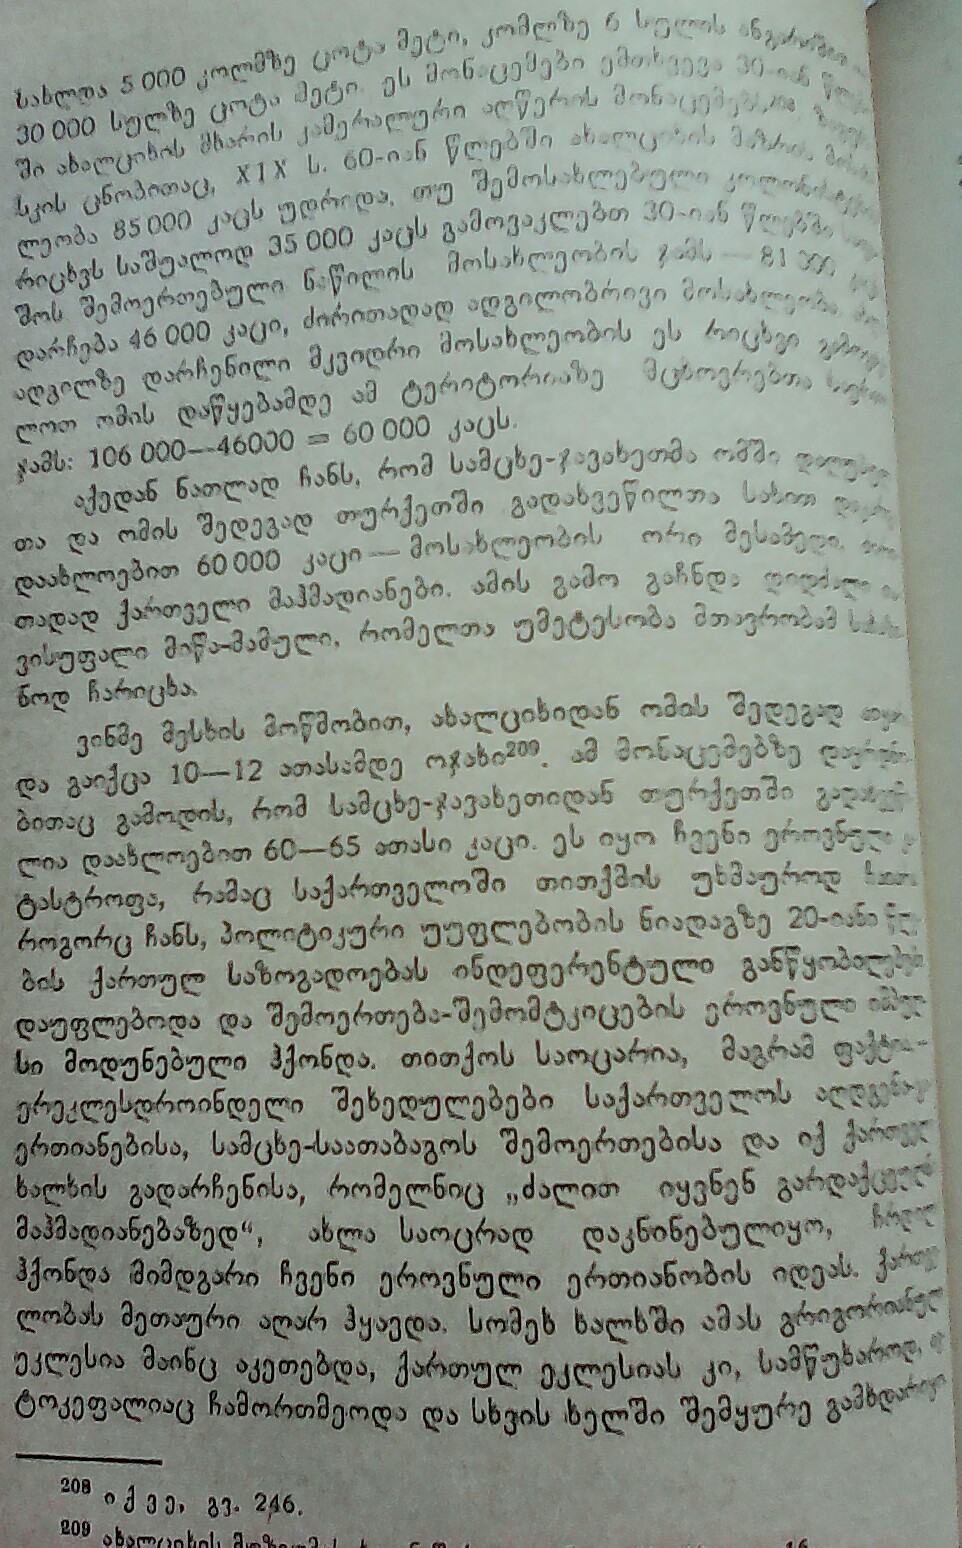 სახლდა 5 000 კოლმზე ცოტა მეტი, კომლზე 6 სულის ანგარიშით
30 000 სულზე ცოტა მეტი. ეს მონაცემები ემთხვევა 30-იან
ში ახალციხის მხარის კამერალური აღწერის მონაცემებსაც.
სკის ცნობითაც, XIX ს. 60-იან წლებში ახალციხის მაზრის
ლეობა 85 000 კაცს უდრიდა. თუ შემოსახლებული
რიცხვს საშუალოდ 35 000 კაცს გამოვაკლებთ 30-იან წლებში
შოს შემოერთებული ნაწილის მოსახლეობის ჯამს — 81 000
დარჩება 46 000 კაცი, ძირითადად ადგილობრივი მოსახლეობა.
ადგილზე დარჩენილი მკვიდრი მოსახლეობის ეს რიცხვი
ლოთ ომის დაწყებამდე ამ ტერიტორიაზე მცხოვრებთა
ჯამს: 106 000—46000 = 60 000 კაცს.
აქედან ნათლად ჩანს, რომ სამცხე-ჯავახეთმა ომში
თა და ომის შედეგად თურქეთში გადახვეწილთა სახით
დაახლოებით 60 000 კაცი — მოსახლეობის ორი მესამედი,
თადად ქართველი მაჰმადიანები. ამის გამო გაჩნდა დიდძალი
ვისუფალი მიწა-მამული, რომელთა უმეტესობა მთავრობამ
ნოდ ჩარიცხა.
ვინმე მესხის მოწმობით, ახალციხიდან ომის შედეგად
და გაიქცა 10—12 ათასამდე ოჯახი²⁰⁹. ამ მონაცემებზე
ბითაც გამოდის, რომ სამცხე-ჯავახეთიდან თურქეთში
ლია დაახლოებით 60—65 ათასი კაცი. ეს იყო ჩვენი ეროვნული
ტასტროფა, რამაც საქართველოში თითქმის უხმაუროდ
როგორც ჩანს, პოლიტიკური უუფლებობის ნიადაგზე 20-იანი
ბის ქართულ საზოგადოებას ინდეფერენტული
დაუფლებოდა და შემოერთება-შემომტკიცების ეროვნული
სი მოდუნებული ჰქონდა. თითქოს საოცარია, მაგრამ
ერეკლესდროინდელი შეხედულებები საქართველოს
ერთიანებისა, სამცხე-საათაბაგოს შემოერთებისა და იქ ქართველ
ხალხის გადარჩენისა, რომელნიც „ძალით იყვნენ
მაჰმადიანებაზედ“, ახლა საოცრად დაკნინებულიყო,
ჰქონდა მიმდგარი ჩვენი ეროვნული ერთიანობის იდეას.
ლობას მეთაური აღარ ჰყავდა. სომეხ ხალხში ამას გრიგორიანულ
ეკლესია მაინც აკეთებდა, ქართულ ეკლესიას კი, სამწუხაროდ,
ტოკეფალიაც ჩამორთმეოდა და სხვის ხელში შემყურე
²⁰⁸ იქვე, გვ. 246.
²⁰⁹ ახალციხის